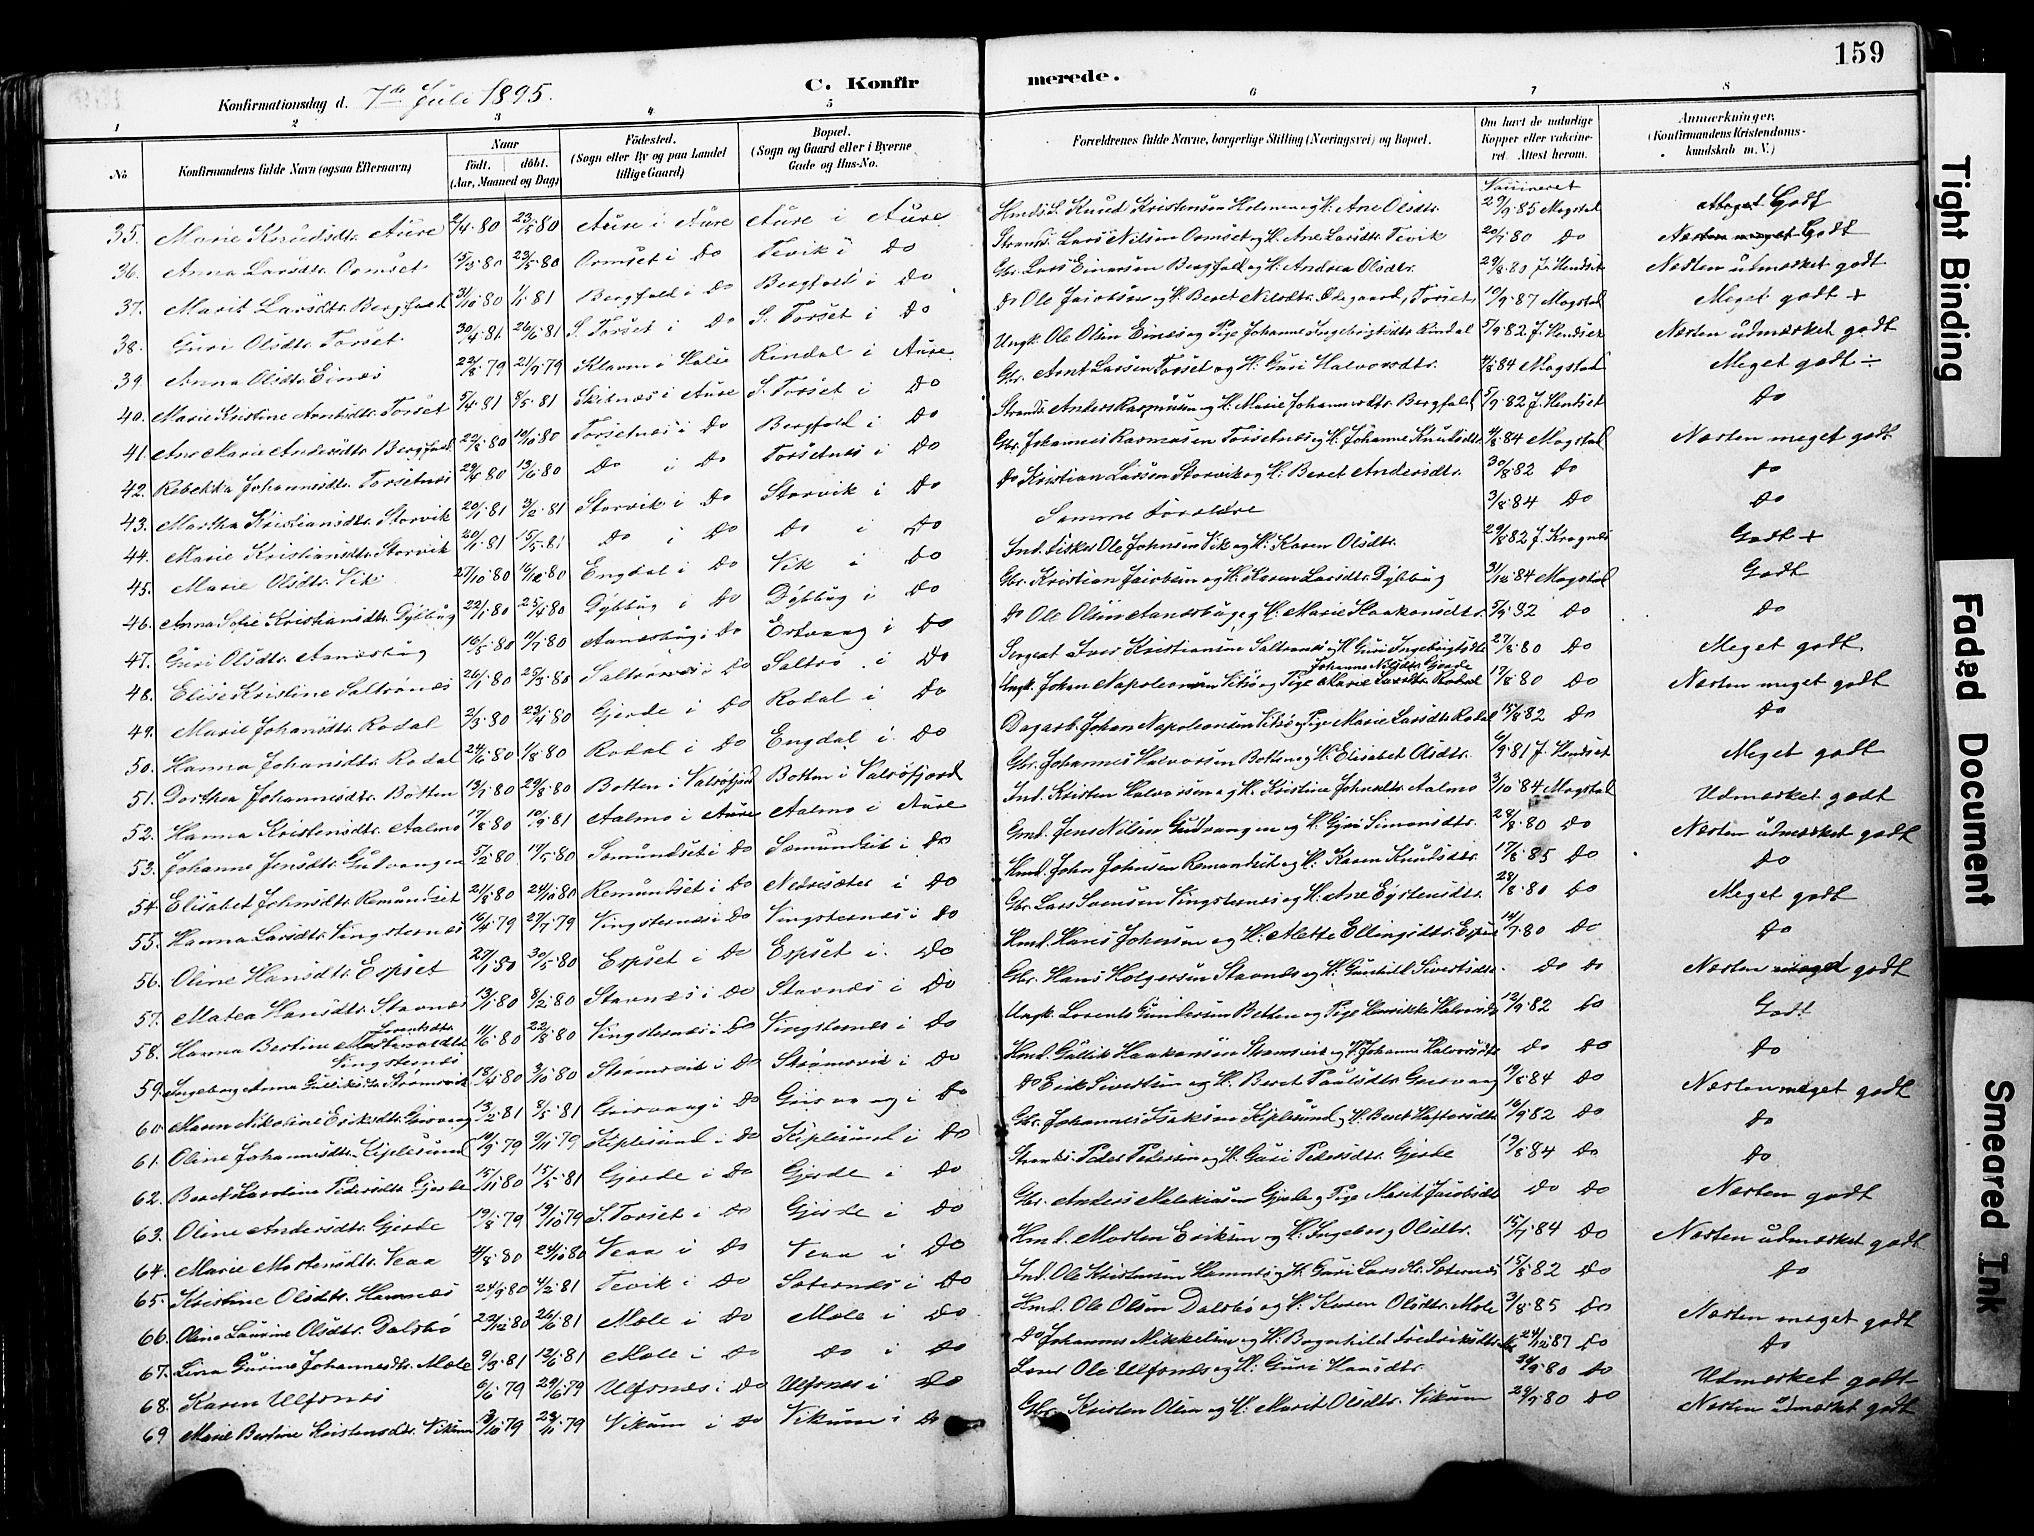 159
Konfirmationsdag d. 7de Juli 1895.
C. Konfirmerede.
1 2 3 4 5 6 7 8
No
Konfirmandens fulde Navn (ogsaa Efternavn)
Naar
födt. döbt.
(Aar, Maaned og Dag)
Födested.
(Sogn eller By og paa Landet tillige Gaard)
Bopæl.
(Sogn og Gaard eller i Byerne Gade og Hus-No.
Forældrenes fulde Navne, borgerlige Stilling (Næringsvei) og Bopæl.
Om havt de naturlige Kopper eller vakcineret. Attest herom.
Anmærkninger.
(Konfirmandens Kristendomskundskab m. V.)
Vaccineret
35. Marie Knudsdtr. Aure 2/4.80 23/5.80 Aure i Aure Aure i Aure Hmds S. Knud Kristensen Holmen og H. Ane Olsdtr. 29/9.85 Mogstad Meget Godt
36. Anna Larsdtr. Ormset 15/3.80 23/5.80 Ormset i Do Tevik i Do Strands. Lars Nilsen Ormset og H. Ane Larsdtr. Tevik 20/7.80 Do Næsten meget Godt
37. Marit Larsdtr. Bergfald 31/10.80 1/1.81 Bergfald i Do Bergfald i Do Gbr. Lars Einarsen Bergfald og H. Andrea Olsdtr. 29/8.80 J. Hendset Næsten udmærket godt
38. Guri Olsdtr. Torset 30/4.81 26/6.81 S. Torset i Do S. Torset i Do Do Ole Jacobsen og H. Beret Nilsdtr. Ødegaard, Torset 10/9.87 Mogstad Meget godt +
39. Anna Olsdtr. Einæs 22/8.79 21/9.79 Klavnes i Halse Rindal i Aure Ungk. Ole Olsen Einæs og Pige Johanne Ingebrigtsdtr. Rindal 5/9.82 J. Hendset Næsten udmærket godt
40. Marie Kristine Arntsdtr. Torset 5/4.81 8/5.81 Skitnæs i Aure S. Torset i Do Gbr. Arnt Larsen Torset og H. Guri Halvorsdtr. 4/8.84 Mogstad Meget godt ÷
41. Ane Marie Andersdtr. Bergfald 22/8.80 10/10.80 Torsetnæs i Do Bergfald i Do Strands. Anders Rasmussen og H. Marie Johannesdtr. Bergfald 5/9.82 J. Hendset Do
42. Rebekka Johannesdtr. Torsetnæs 29/4.80 13/6.80 Do i Do Torsetnæs i Do Gbr. Johannes Rasmussen Torsetnæs og H. Johanne Knudsdtr. 4/8.84 Mogstad Næsten meget godt
43. Martha Kristiansdtr. Storvik 20/1.81 3/2.81 Storvik i Do Storvik i Do Do Kristian Larsen Storvik og H. Beret Andersdtr. 30/8.82 Do Do
44. Marie Kristiansdtr. Storvik 20/1.81 15/5.81 Do i Do Do i Do Samme Forældre 3/8.84 Do Do
45. Marie Olsdtr. Vik 27/10.80 16/12.80 Engdal i Do Vik i Do Ind. Fisker Ole Johnsen Vik og H. Karen Olsdtr. 29/8.82 J. Krognes Godt +
46. Anna Sofie Kristiansdtr. Dybbug 22/1.80 25/4.80 Dybbug i Do Dybbug i Do Gbr. Kristian Jacobsen og H. Karen Larsdtr. Dybbug 3/12.84 Mogstad Godt
47. Guri Olsdtr. Aanesbug 16/5.80 9/7.80 Aanesbug i Do Ertvaag i Do Do Ole Olsen Aanesbug og H. Marie Haakensdtr. 5/9.82 Do Do
48. Elise Kristine Saltrønes 26/1.80 25/3.80 Saltrønes i Do Saltrø i Do Sergeat Iver Kristiansen Saltrønes og H. Guri Ingebrigtsdtr. 27/8.80 Do Meget godt
49. Marie Johansdtr. Rodal 2/3.80 23/4.80 Gjerde i Do Rodal i Do Ungk. Johan Napoleonsen Vitsø og Pige Marie Larsdtr. Rodal Johanna Nilsdtr. Gjerde 17/8.80 Do Næsten meget godt
50. Hanna Johansdtr. Rodal 24/6.80 1/8.80 Rodal i Do Engdal i Do Dagarb. Johan Napoleonsen Vitsø og Pige Marie Larsdtr. Rodal 15/8.82 Do Do
51. Dorthea Johannesdtr. Botten 13/7.80 29/8.80 Botten i Valsøfjord Botten i Valsøfjord Gbr. Johannes Halvorsen Botten og H. Elisabet Olsdtr. 6/9.81 J. Hendset Meget godt
52. Hanna Kristensdtr. Aalmo 17/8.80 10/9.81 Aalmo i Aure Aalmo i Aure Ind. Kristen Halvorsen og H. Kristine Johnsdtr. Aalmo 3/10.84 Mogstad Udmærket godt
53. Johanne Jensdtr. Gudvangen 5/2.80 17/5.80 Semundset i Do Semundset i Do Gmd. Jens Nilsen Gudvangen og H. Guri Simonsdtr. 28/8.80 Do Næsten udmærket godt
54. Elisabet Johnsdtr. Remundset 21/8.80 24/10.80 Remundset i Do Nedresæter i Do Hmd. John Johnsen Remundset og H. Karen Knudsdtr. 17/8.85 Do Do
55. Hanna Larsdtr. Vingsternes 16/4.79 27/7.79 Vingsternes i Do Vingsternes i Do Gbr. Lars Svensen Vingsternes og H. Ane Eystensdtr. 28/8.80 Do Meget godt
56. Oline Hansdtr. Espset 27/1.80 30/5.80 Espset i Do Espset i Do Hmd. Hans Johnsen og H. Mette Ellingsdtr. Espset 14/7.80 Do Do
57. Matea Hansdtr. Stavnæs 13/1.80 8/2.80 Stavnæs i Do Stavnæs i Do Gbr. Hans Holgersen Stavnæs og H. Gunhild Sivertsdtr. Do Do Næsten meget godt
58. Hanna Bertine Lorentsdtr. Vingsternes 11/6.80 22/8.80 Vingsternes i Do Vingsternes i Do Ungk. Lorents Gundersen Betten og Pige Henrikke Halvorsdtr. 12/9.82 Do Godt
59. Ingeborg Anna Gulliksdtr. Strømsvik 18/4.80 3/10.80 Strømsvik i Do Strømsvik i Do Hmd. Gullik Haakensen Strømsvik og H. Johanna Halvorsdtr. Do Do Do
60. Maren Nikoline Eriksdtr. Grisvaag 13/2.81 8/5.81 Grisvaag i Do Grisvaag i Do Do Erik Sivertsen og H. Beret Paulsdtr. Grisvaag 19/8.84 Do Næsten meget godt
61. Oline Johannesdtr. Kiplesund 10/9.79 9/11.79 Kiplesund i Do Kiplesund i Do Gbr. Johannes Isaksen Kiplesund og H. Beret Haftorsdtr. 16/9.82 Do Do
62. Beret Caroline Pedersdtr. Gjerde 15/11.80 15/5.81 Gjerde i Do Gjerde i Do Strands. Peder Pedersen og H. Guri Pedersdtr. Gjerde 19/8.84 Do Do
63. Oline Andersdtr. Gjerde 19/8.79 19/10.79 S. Torset i Do Gjerde i Do Gbr. Anders Malekiasen Gjerde og Pige Marit Jacobsdtr. Do Do Næsten godt
64. Marie Mortensdtr. Veaa 4/8.80 24/10.80 Veaa i Do Veaa i Do Hmd. Morten Eriksen og H. Ingeborg Olsdtr. 15/7.84 Do Næsten udmærket godt
65. Kristine Olsdtr. Hamnes 24/9.80 4/2.81 Tevik i Do Sæternes i Do Ind. Ole Kristensen Hamnes og H. Guri Larsdtr. Sæternes 15/8.82 Do Do
66. Olina Laurine Olsdtr. Dalsbø 23/12.80 26/6.81 Mæle i Do Mæle i Do Hmd. Ole Olsen Dalsbø og H. Karen Olsdtr. Mæle 3/8.85 Do Næsten meget godt
67. Lina Gurine Johannesdtr. Mæle 9/3.81 12/6.81 Mæle i Do Do i Do Do Johannes Mikkelsen og H. Bogenhild Fredriksdtr. 24/12.87 Do Do
68. Karen Ulfsnes 6/6.79 29/6.79 Ulfsnes i Do Ulfsnes i Do Ole Ulfsnes og H. Guri Hansdtr. 24/9.80 Do Udmærket godt
69 Marie Bertine Kristensdtr. Vikum 3/10.79 23/11.79 Vikum i Do Vikum i Do Gbr. Kristen Olsen og H. Marit Olsdtr. Vikum 29/9.80 Do Næsten udmærket godt
Tight Binding
Faded Document
Smeared Ink